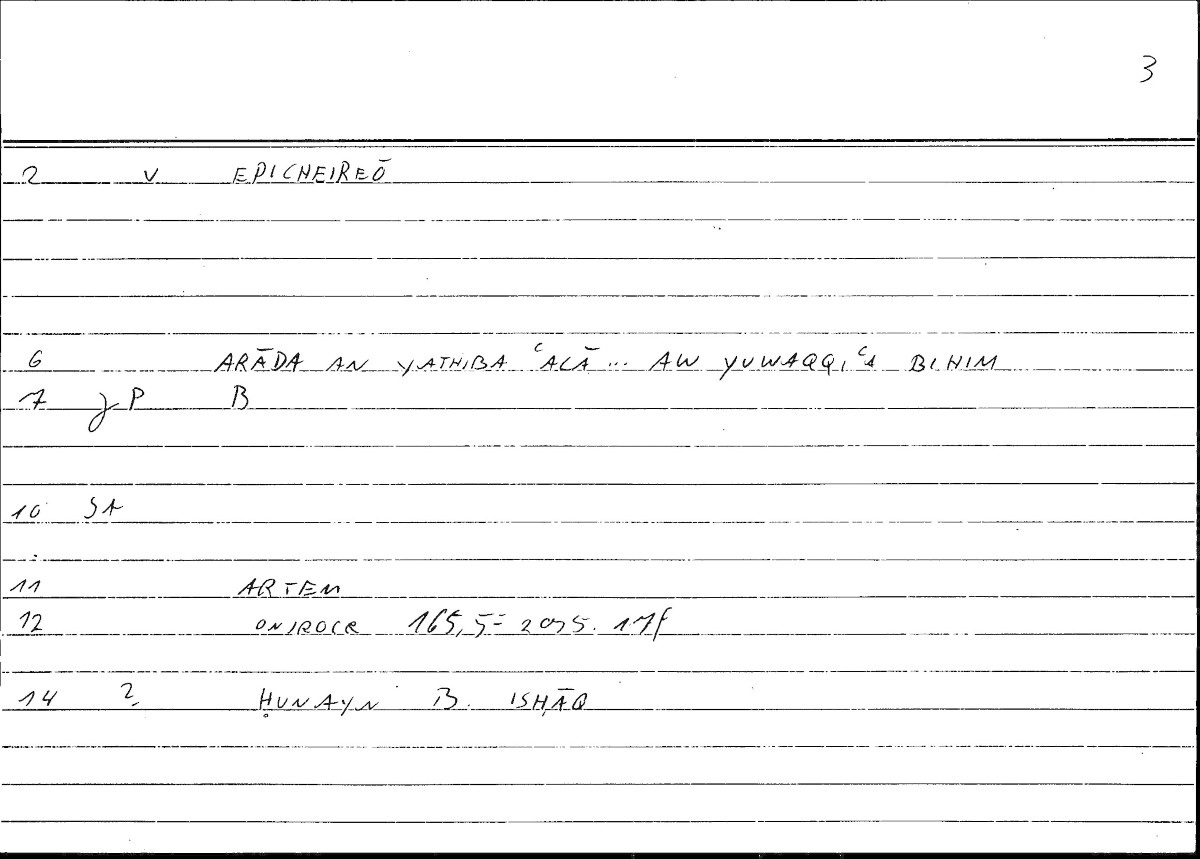 3
2 V EPICHEIREŌ
6 ARĀDA AN YATHIBA ʿALĀ... AW YUWAQQIʿA BIHIM
7 P B
10 SA
11 ARTEM
12 ONIROCR 165,5 = 17f
14 2. ḤUNAYN B. ISḤĀQ